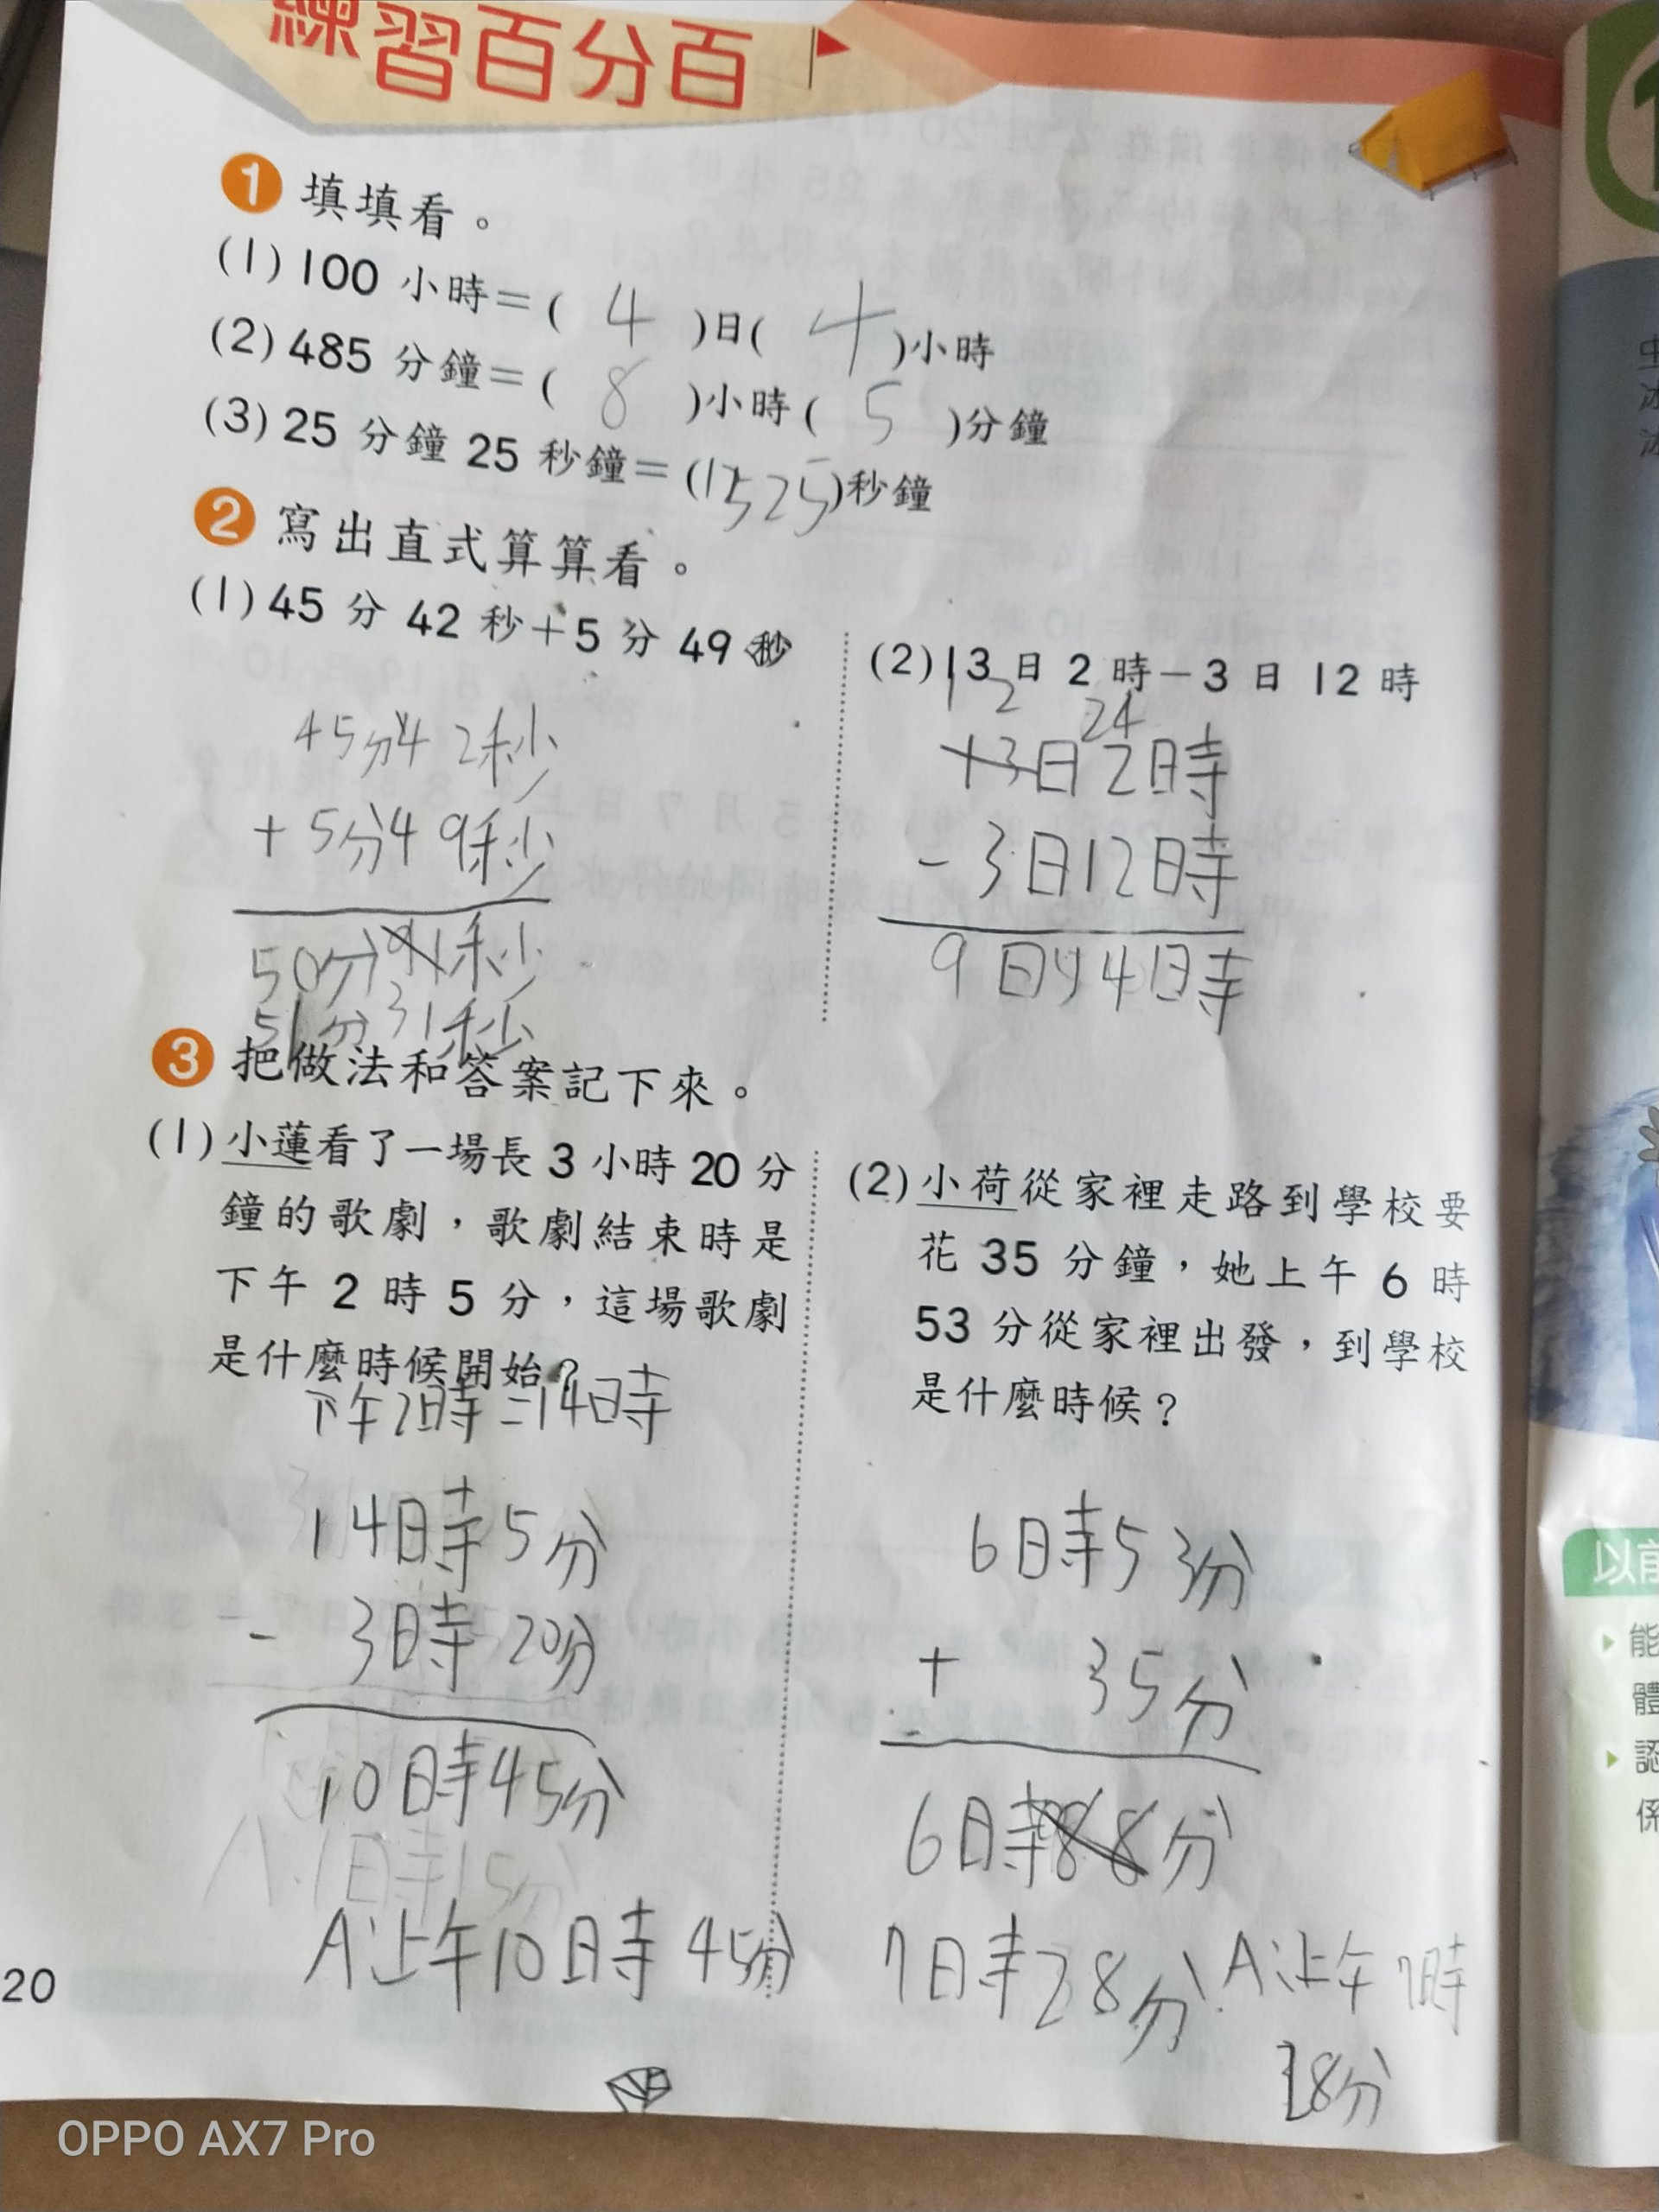 練習百分百
1 填填看。
(1) 100 小時=( 4 )日( 4 )小時
(2) 485 分鐘=( 8 )小時( 5 )分鐘
(3) 25 分鐘 25 秒鐘=(1525)秒鐘
2 寫出直式算算看。
(1) 45 分 42 秒+5 分 49 秒
45分42秒
+ 5分49秒
50分91秒
51分31秒
(2) 13 日 2 時-3 日 12 時
12 24
13日2時
- 3日12時
9日14時
3 把做法和答案記下來。
(1) 小蓮看了一場長 3 小時 20 分
鐘的歌劇,歌劇結束時是
下午 2 時 5 分,這場歌劇
是什麼時候開始?
下午2時=14時
14時5分
- 3時20分
10時45分
A:上午10時45分
(2) 小荷從家裡走路到學校要
花 35 分鐘,她上午 6 時
53 分從家裡出發,到學校
是什麼時候?
6時53分
+ 35分
6時88分
7時28分 A:上午7時
28分
20
以前
能
體
認
係
OPPO AX7 Pro